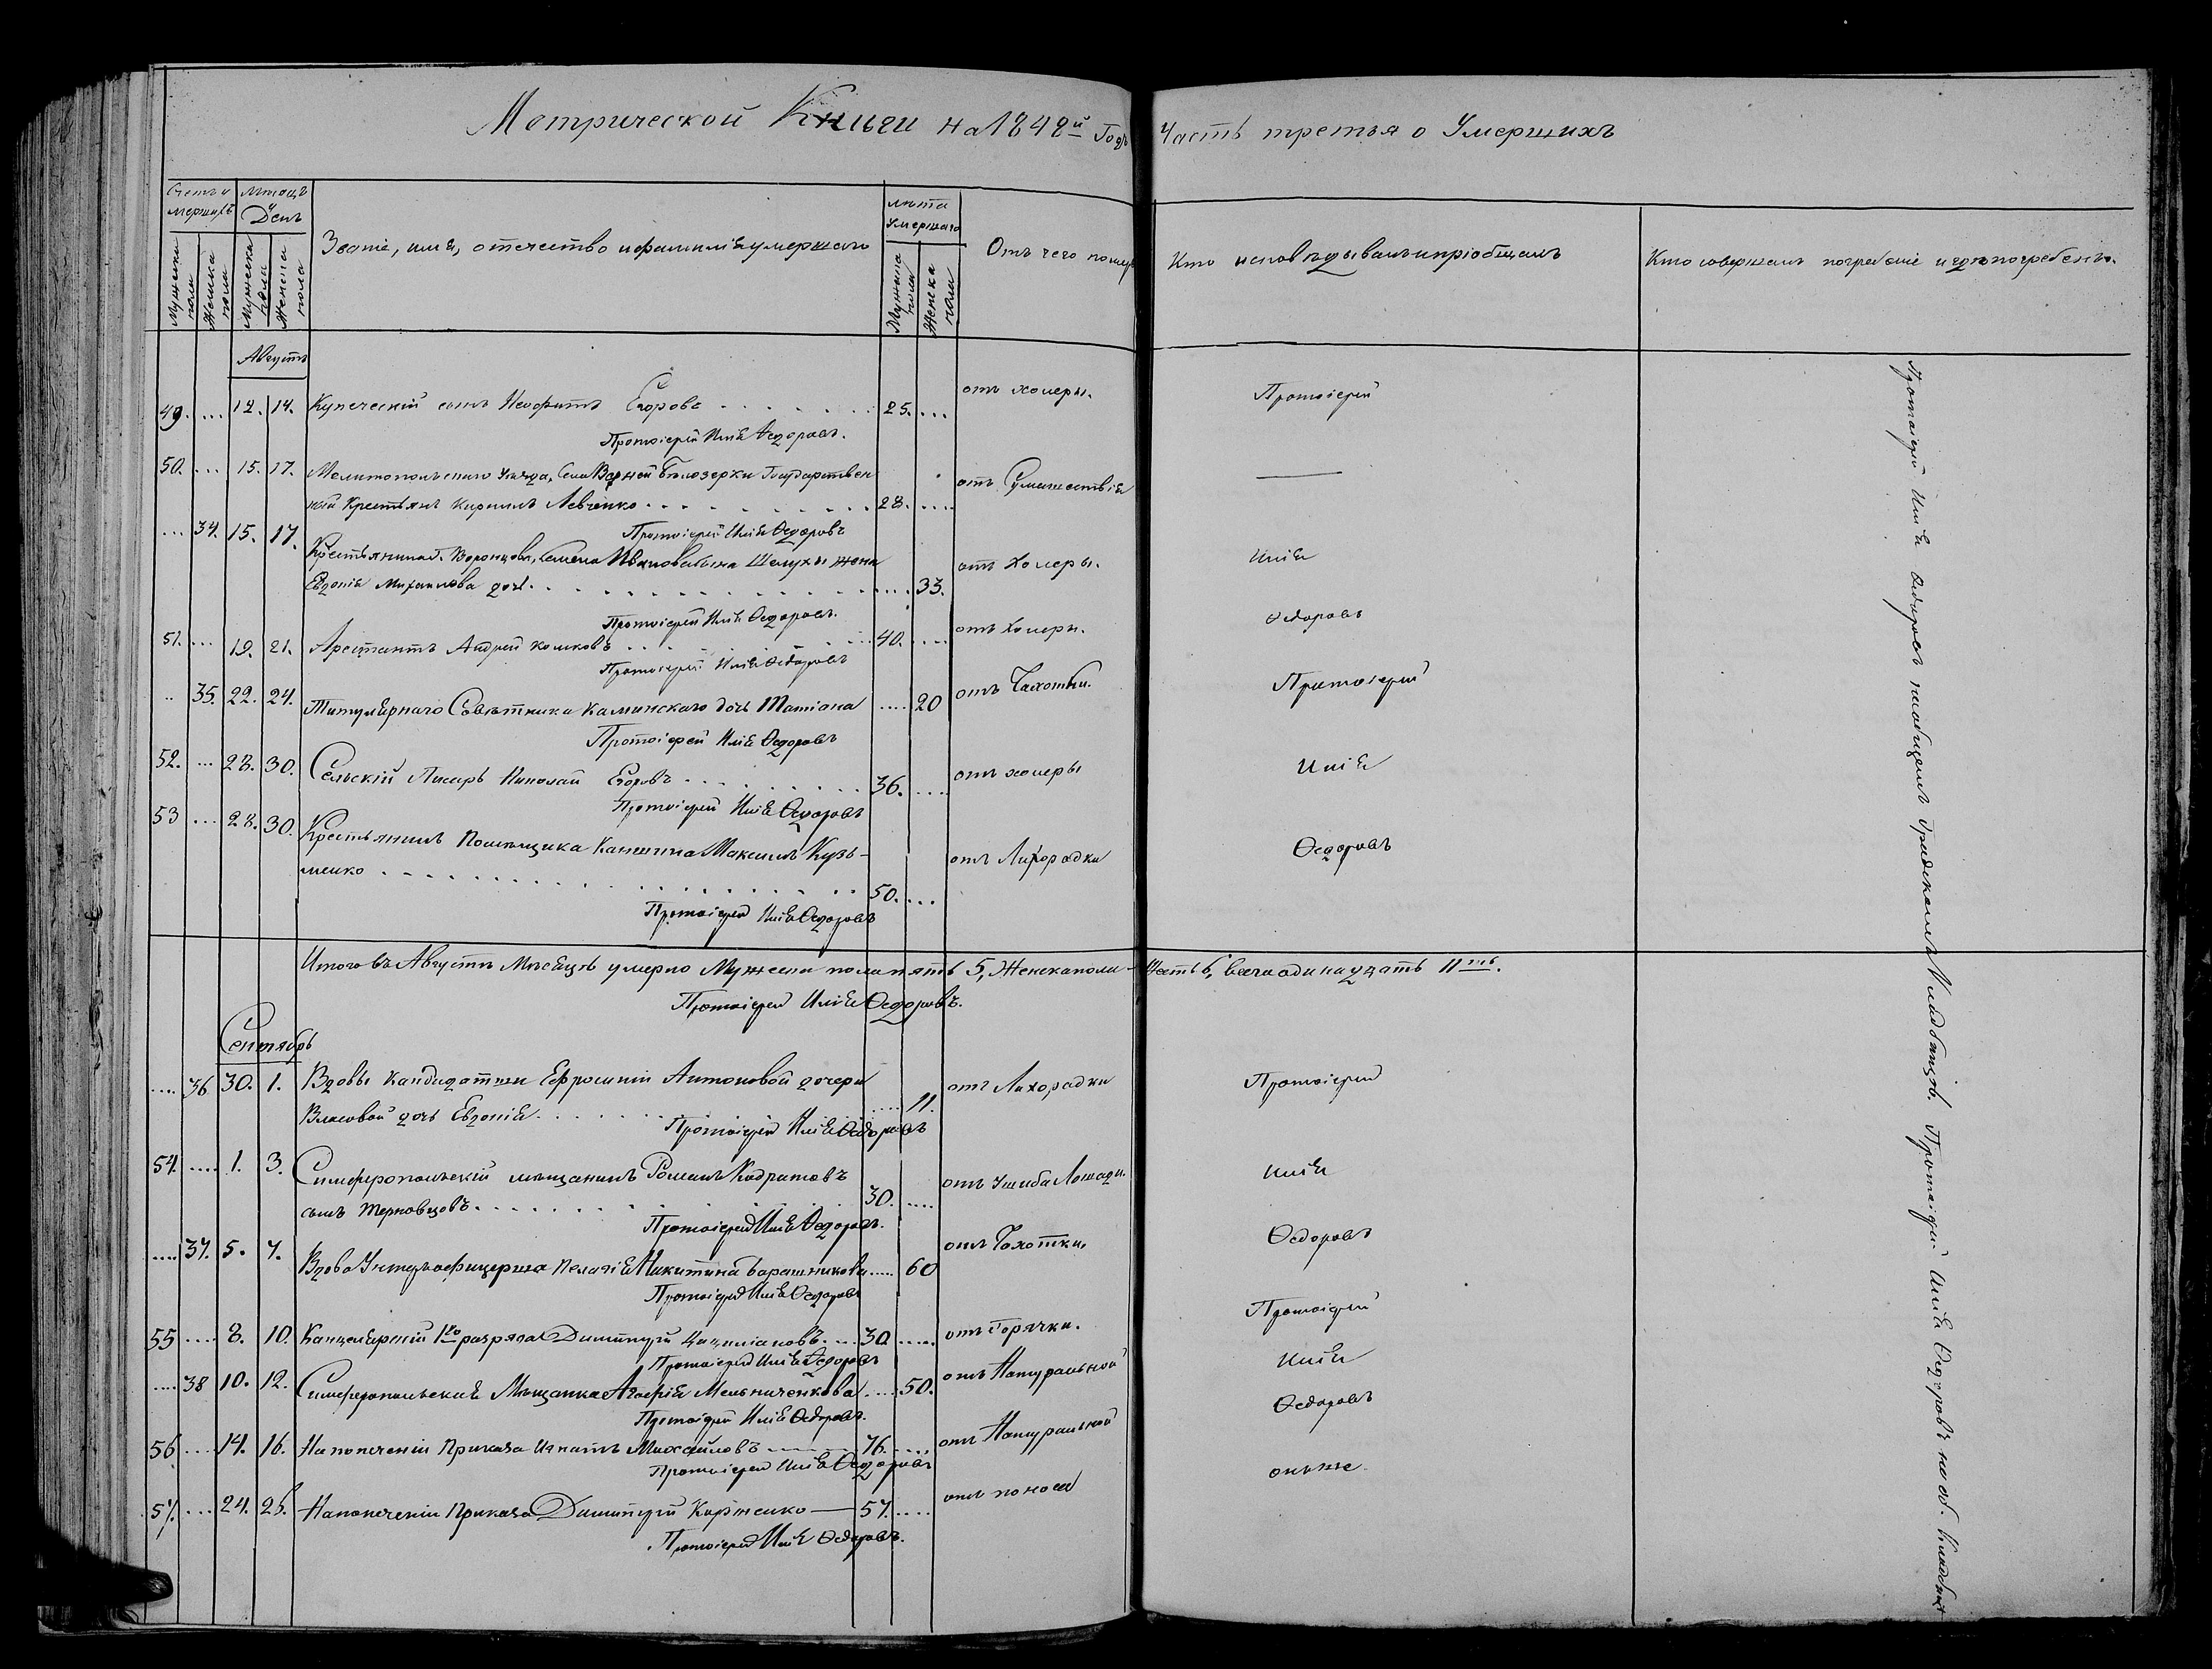 Метрической Книги на 1848й Годъ Часть третья о Умершихъ
Счетъ умершихъ
Мѣсяцъ и День
Званіе, имя, отечество и фамилія умершаго
Лѣта умершаго
Отъ чего померъ
Кто исповѣдывалъ и пріобщалъ
Кто совершалъ погребеніе и гдѣ погребенъ.
Мужеска пола
Женска пола
Мужеска пола
Женска пола
Мужеска пола
Женска пола
Августъ
49. ... 12. 14. Купеческій сынъ Неофитъ Егоровъ 25. ... отъ холеры. Протоіерей
Протоіерей Илія Ѳедоровъ.
50. ... 15. 17. Мелитопольскаго Уѣзда, Села Верхней Бѣлозерки Государствен
ный Крестьянъ Кирилъ Левченко 28. ... отъ Сумашествія
Протоіерей Илія Ѳедоровъ
... 34. 15. 17. Крестьянина Воронцова, Семена Иванова сына Шелухи жена
Евдокія Михайлова дочь 33. отъ Холеры. Илія
Протоіерей Илія Ѳедоровъ.
51. ... 19. 21. Арестантъ Андрей Комковъ 40. ... отъ Холеры. Ѳедоровъ
Протоіерей Илія Ѳедоровъ
.. 35. 22. 24. Титулярнаго Совѣтника Каминскаго дочь Татіана .... 20 отъ Чахотки. Протоіерей
Протоіерей Илія Ѳедоровъ
52. ... 28. 30. Сельскій Писарь Николай Егоровъ 36. ... отъ холеры Илія
Протоіерей Илія Ѳедоровъ
53 ... 28. 30. Крестьянинъ Помѣщика Каншина Максимъ Кузь-
менко 50. ... отъ Лихорадки Ѳедоровъ
Протоіерей Илія Ѳедоровъ
Итого въ Августѣ Мѣсяцѣ умерло Мужеска пола пять 5, Женска пола - Шесть 6, всего одинадцать 11ть.
Протоіерей Илія Ѳедоровъ.
Сентябрь
.... 36 30. 1. Вдовы Кандидатши Ефросиніи Антоновой дочери
Власовой дочь Евдокія .... 11. отъ Лихорадки Протоіерей
Протоіерей Илія Ѳедоровъ
54. .... 1. 3. Симферопольскій мѣщанинъ Романъ Кодратовъ
сынъ Терновцовъ 30. .... отъ Ушиба Лошади. Илія
Протоіерей Илія Ѳедоровъ.
.... 37. 5. 7. Вдова Унтеръ офицерша Пелагія Никитина Барашникова .... 60 отъ Чахотки, Ѳедоровъ
Протоіерей Илія Ѳедоровъ
55 .... 8. 10. Канцелярскій 1го разряда Димитрій Цициліановъ. ... 30 .... отъ Горячки. Протоіерей
Протоіерей Илія Ѳедоровъ
.... 38 10. 12. Симферопольская Мѣщанка Агафія Мельниченкова .... 50. отъ Натуральной Илія
Протоіерей Илія Ѳедоровъ. Ѳедоровъ
56 .... 14. 16. На попеченіи Приказа Игнатъ Михайловъ 76. .... отъ Натуральной
Протоіерей Илія Ѳедоровъ
57. ... 24. 26. На попеченіи Приказа Димитрій Корженко — 57. .... отъ поноса онъ же.
Протоіерей Илія Ѳедоровъ.
Протоіерей Илія Ѳедоровъ на общемъ Градскомъ Кладбищѣ. Протоіерей Илія Ѳедоровъ на об. Кладбищ